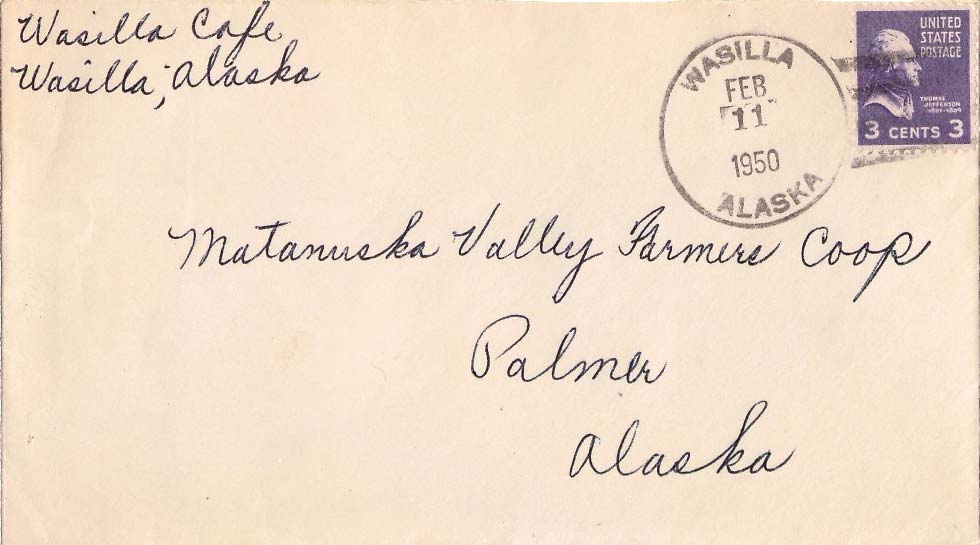 Wasilla Cafe
Wasilla, Alaska
WASILLA
FEB
11
1950
ALASKA
UNITED
STATES
POSTAGE
THOMAS
JEFFERSON
1801-1809
3 CENTS 3
Matanuska Valley Farmers Coop
Palmer
Alaska